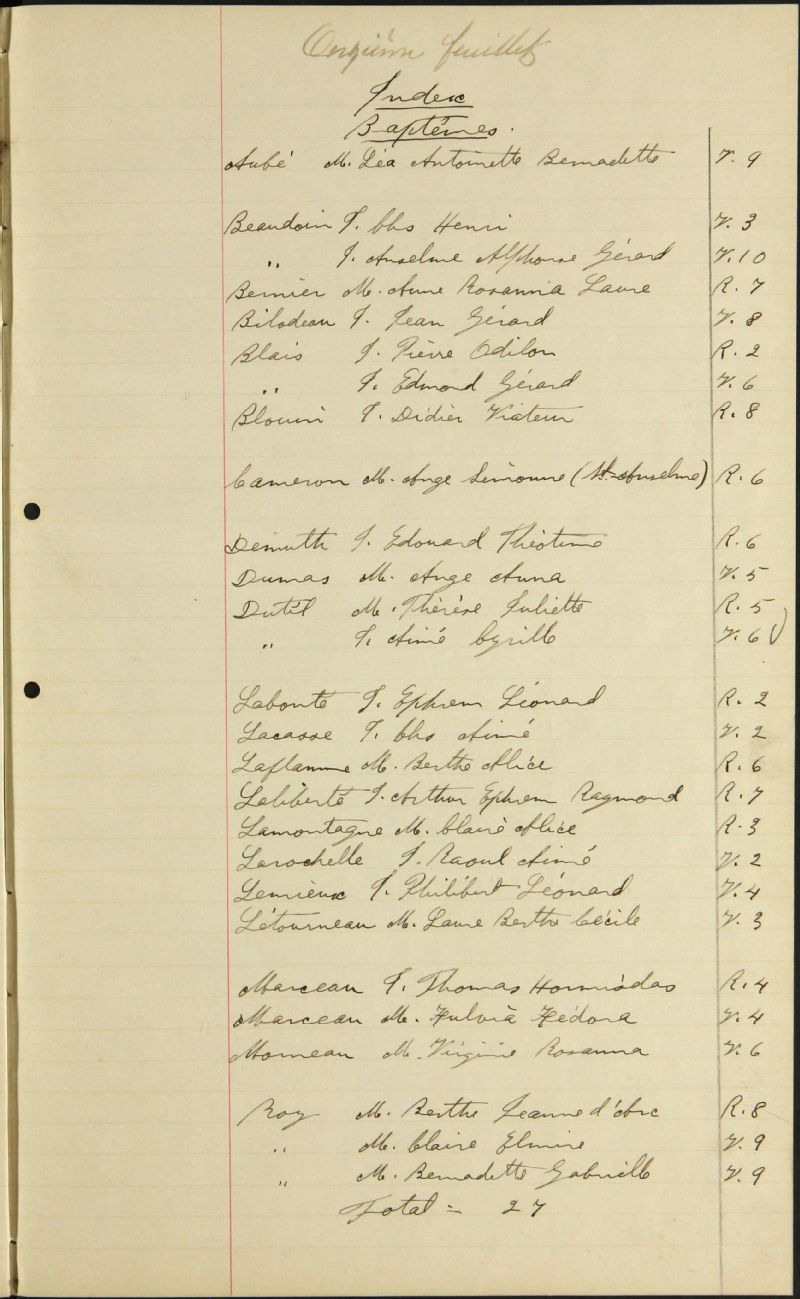 Onzième feuillet
Index
Baptêmes.
Aubé M. Léa Antoinette Bernadette V. 9
Beaudoin J. Chs Henri V. 3
" J. Anselme Alphonse Gérard V. 10
Bernier M. Anne Rosanna Laure R. 7
Bilodeau J. Jean Gérard V. 8
Blais J. Pierre Odilon R. 2
" J. Edmond Gérard V. 6
Blouin J. Didier Viateur R. 8
Cameron M. Ange Simonne (St-Anselme) R. 6
Demuth J. Edouard Théotime R. 6
Dumas M. Ange Anna V. 5
Dutil M. Thérèse Juliette R. 5
" J. Aimé Cyrille V. 6
Labonté J. Ephrem Léonard R. 2
Lacasse J. Chs Aimé V. 2
Laflamme M. Berthe Alice R. 6
Laliberté J. Arthur Ephrem Raymond R. 7
Lamontagne M. Claire Alice R. 3
Larochelle J. Raoul Aimé V. 2
Lemieux J. Philibert Léonard V. 4
Létourneau M. Laure Berthe Cécile V. 3
Marceau J. Thomas Hormisdas R. 4
Marceau M. Fulvia Fédora V. 4
Morneau M. Virginie Rosanna V. 6
Roy M. Berthe Jeanne d'Arc R. 8
" M. Claire Elmire V. 9
" M. Bernadette Gabrielle V. 9
Total = 27